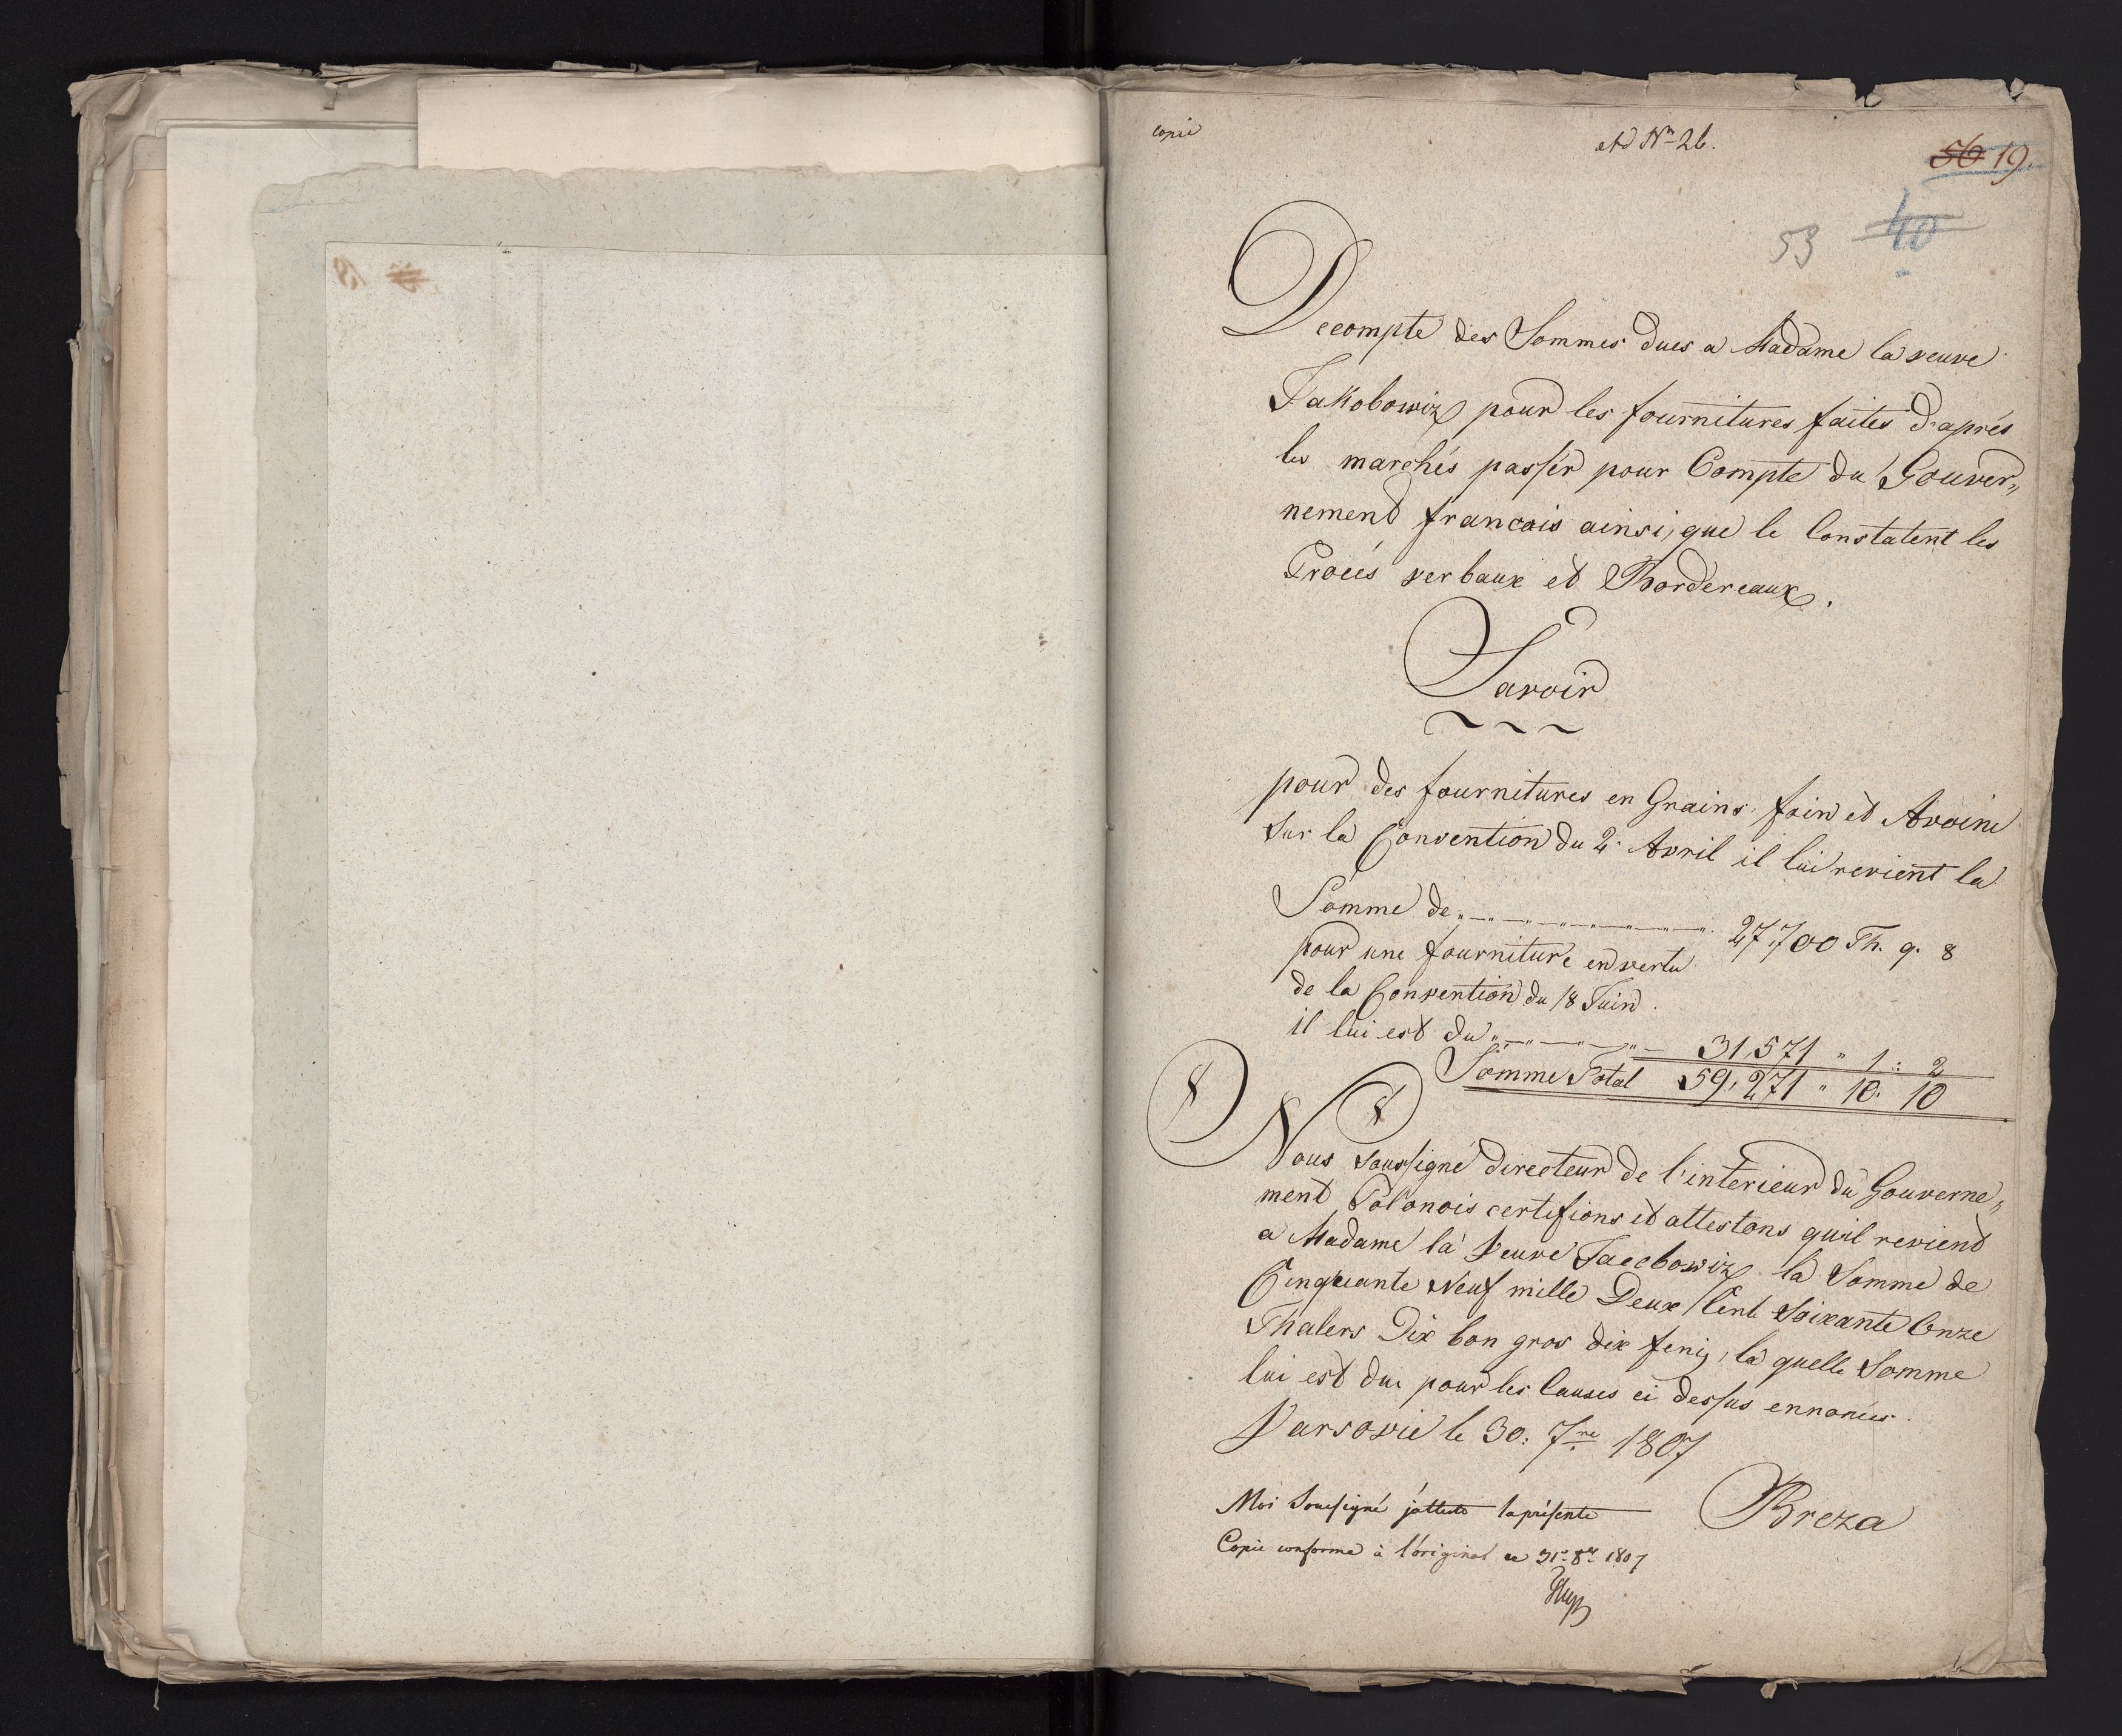 copie
Ad Nº 26.
56 19.
53 40
Decompte des Sommes dues a Madame la veuve
Jakobowiz pour les fournitures faites d'aprés
les marchés passés pour Compte du Gouver„
nement francois ainsi, que le Constatent les
Procés verbaux et Bordereaux.
Savoir
pour des fournitures en Grains, foin et Avoine
Sur la Convention du 2. Avril il lui revient la
Somme de 27,700 Th. 9. 8
pour une fourniture en vertu
de la Convention du 18 Juin
il lui est du 31,571 " 1: 2
Somme Total 59,271 " 10. 10
Nous soussigné directeur de l'interieur du Gouverne„
ment Polonois certifions et attestons quil revient
a Madame la Veuve Jacobowiz la Somme de
Cinquante Neuf mille Deux Cent Soixante Onze
Thalers Dix bon gros dix fenis, la quelle Somme
lui est due pour les Causes ci dessus ennoncés.
Varsovie le 30. 7re 1807
Breza
Moi Soussigné j'atteste la présente
Copie conforme à l'original ce 31e 8re 1807